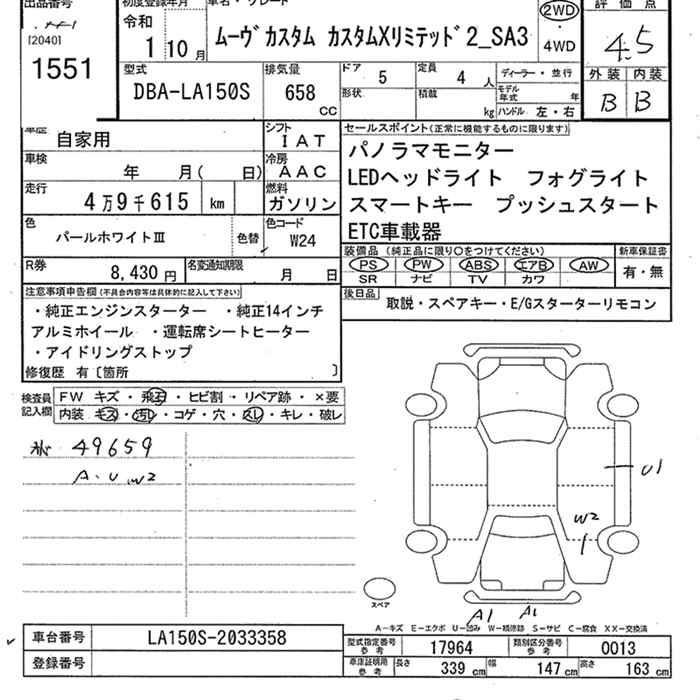 出品番号
[2040]
1551
初度登録年月
令和
1 10 月
車名・グレード
ムーヴ カスタム カスタムXリミテッド 2_SA3
2WD
・
4WD
評 価 点
4.5
外 装 内 装
B B
型式
DBA-LA150S
排気量
658
CC
ドア
5
形状
定員
4 人
積載
kg
ディーラー・並行
モデル
年式 年
ハンドル 左・右
車歴
自家用
シフト
IAT
車検
年 月( 日)
冷房
AAC
走行
4 万 9 千 615 km
燃料
ガソリン
色
パールホワイトⅢ
色替
色コード
W24
R券
8,430 円
名変通知期限
月 日
セールスポイント(正常に機能するものに限ります)
パノラマモニター
LEDヘッドライト フォグライト
スマートキー プッシュスタート
ETC車載器
装備品(純正品に限り〇をつけてください)
PS PW ABS エアB AW
SR ナビ TV カワ
新車保証書
有・無
後日品
取説・スペアキー・E/Gスターターリモコン
注意事項申告欄(不具合内容等は具体的に記入して下さい)
・純正エンジンスターター ・純正14インチ
アルミホイール ・運転席シートヒーター
・アイドリングストップ
修復歴 有〔箇所 〕
検査員
記入欄
FW キズ・飛石・ヒビ割・リペア跡・×要
内装 キズ・汚れ・コゲ・穴・スレ・キレ・破レ
49659
A.U.W2
U1
W2
スペア
A1 A1
A-キズ E-エクボ U-凹み W-補修跡 S-サビ C-腐食 XX-交換済
車台番号
LA150S-2033358
登録番号
型式指定番号
参 考
17964
類別区分番号
参 考
0013
車庫証明用
参 考
長さ
339 cm
幅
147 cm
高さ
163 cm